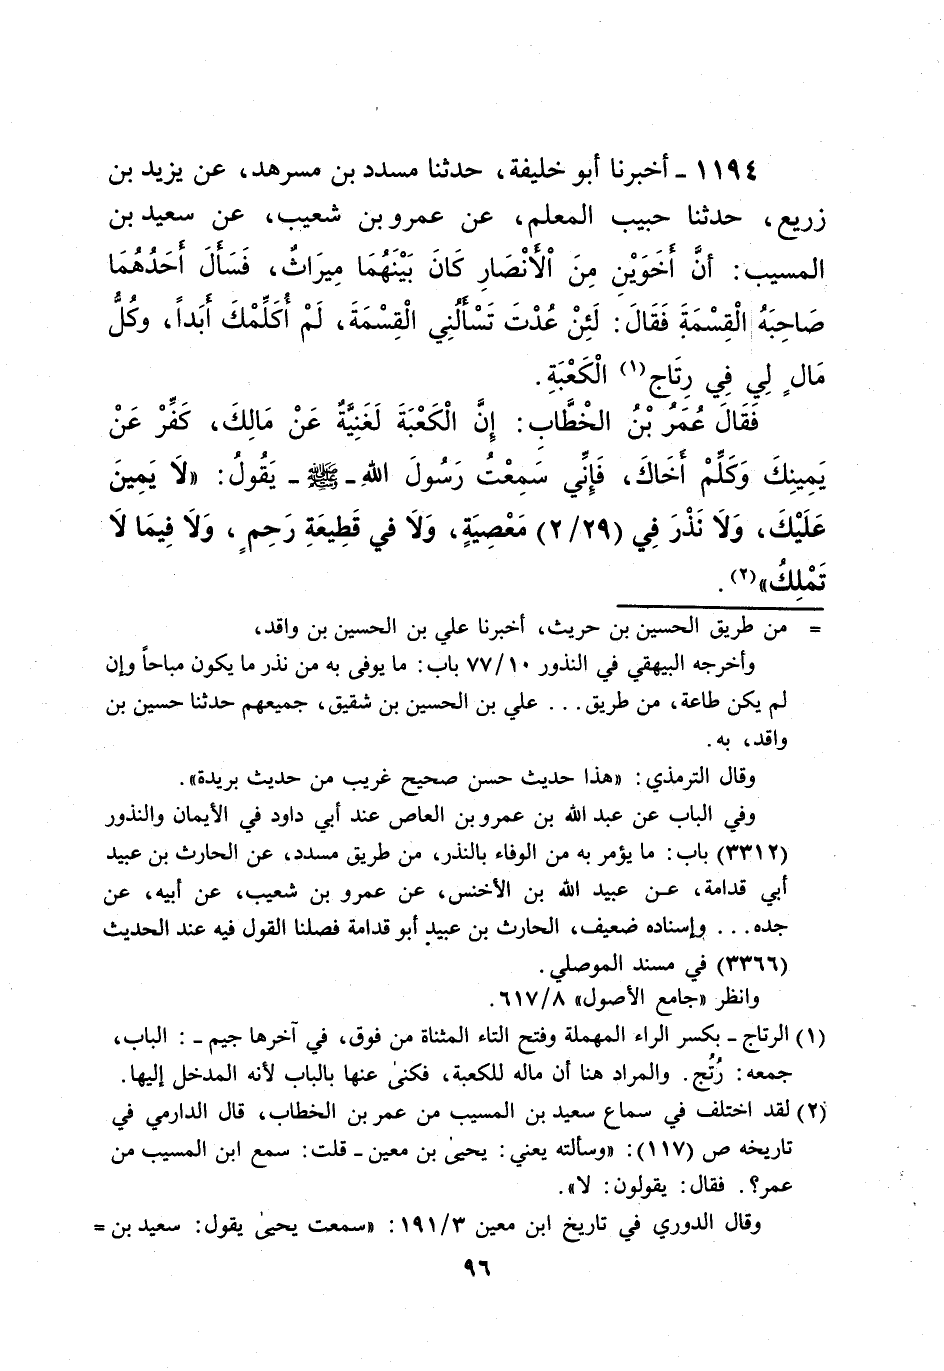 ١١٩٤ - أخبرنا أبو خليفة، حدثنا مسدد بن مسرهد، عن يزيد بن
زريع، حدثنا حبيب المعلم، عن عمرو بن شعيب، عن سعيد بن
المسيب: أنَّ أَخَوَيْنِ مِنَ الْأَنْصَارِ كَانَ بَيْنَهُمَا مِيرَاثٌ، فَسَأَلَ أَحَدُهُمَا
صَاحِبَهُ الْقِسْمَةَ فَقَالَ: لَئِنْ عُدْتَ تَسْأَلُنِي الْقِسْمَةَ، لَمْ أُكَلِّمْكَ أَبَداً، وكُلُّ
مَالٍ لِي فِي رِتَاجِ(١) الْكَعْبَةِ.
فَقَالَ عُمَرُ بْنُ الْخَطَّابِ: إِنَّ الْكَعْبَةَ لَغَنِيَّةٌ عَنْ مَالِكَ، كَفِّرْ عَنْ
يَمِينِكَ وَكَلِّمْ أَخَاكَ، فَإِنِّي سَمِعْتُ رَسُولَ اللهِ - ﷺ - يَقُولُ: «لَا يَمِينَ
عَلَيْكَ، وَلَا نَذْرَ فِي (٢/٢٩) مَعْصِيَةٍ، وَلَا في قَطِيعَةِ رَحِمٍ، وَلَا فِيمَا لَا
تَمْلِكُ»(٢).
= من طريق الحسين بن حريث، أخبرنا علي بن الحسين بن واقد،
وأخرجه البيهقي في النذور ٧٧/١٠ باب: ما يوفى به من نذر ما يكون مباحاً وإن
لم يكن طاعة، من طريق... علي بن الحسين بن شقيق، جميعهم حدثنا حسين بن
واقد، به.
وقال الترمذي: «هذا حديث حسن صحيح غريب من حديث بريدة».
وفي الباب عن عبد الله بن عمرو بن العاص عند أبي داود في الأيمان والنذور
(٣٣١٢) باب: ما يؤمر به من الوفاء بالنذر، من طريق مسدد، عن الحارث بن عبيد
أبي قدامة، عن عبيد الله بن الأخنس، عن عمرو بن شعيب، عن أبيه، عن
جده... وإسناده ضعيف، الحارث بن عبيد أبو قدامة فصلنا القول فيه عند الحديث
(٣٣٦٦) في مسند الموصلي.
وانظر «جامع الأصول» ٦١٧/٨.
(١) الرتاج - بكسر الراء المهملة وفتح التاء المثناة من فوق، في آخرها جيم -: الباب،
جمعه: رُتُج. والمراد هنا أن ماله للكعبة، فكنىٰ عنها بالباب لأنه المدخل إليها.
(٢) لقد اختلف في سماع سعيد بن المسيب من عمر بن الخطاب، قال الدارمي في
تاريخه ص (١١٧): «وسألته يعني: يحيىٰ بن معين - قلت: سمع ابن المسيب من
عمر؟. فقال: يقولون: لا».
وقال الدوري في تاريخ ابن معين ١٩١/٣: «سمعت يحيىٰ يقول: سعيد بن =
٩٦